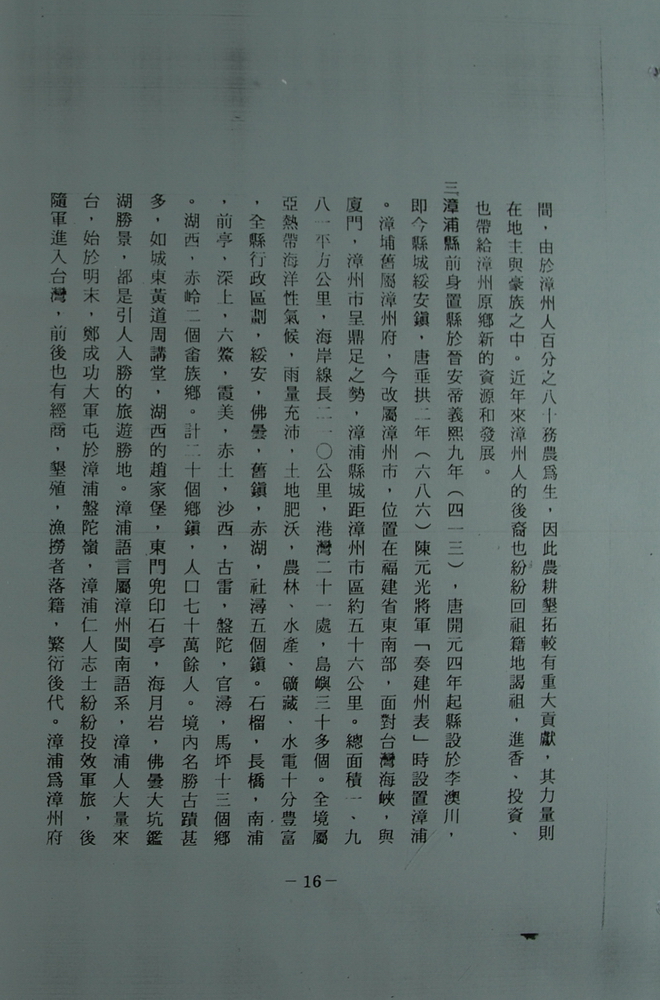 間，由於漳州人百分之八十務農爲生，因此農耕墾拓較有重大貢獻，其力量則
在地主與豪族之中。近年來漳州人的後裔也紛紛回祖籍地謁祖，進香、投資、
也帶給漳州原鄉新的資源和發展。
三漳浦縣前身置縣於晉安帝義熙九年（四一三），唐開元四年起縣設於李澳川，
即今縣城綏安鎮，唐垂拱二年（六八六）陳元光將軍「奏建州表」時設置漳浦
。漳埔舊屬漳州府，今改屬漳州市，位置在福建省東南部，面對台灣海峽，與
廈門，漳州市呈鼎足之勢，漳浦縣城距漳州市區約五十六公里。總面積一、九
八一平方公里，海岸線長二一〇公里，港灣二十一處，島嶼三十多個。全境屬
亞熱帶海洋性氣候，雨量充沛，土地肥沃，農林、水產、礦藏、水電十分豐富
，全縣行政區劃，綏安，佛曇，舊鎮，赤湖，社潯五個鎮。石榴，長橋，南浦
，前亭，深上，六鰲，霞美，赤土，沙西，古雷，盤陀，官潯，馬坪十三個鄉
。湖西，赤岭二個畲族鄉。計二十個鄉鎮，人口七十萬餘人。境內名勝古蹟甚
多，如城東黃道周講堂，湖西的趙家堡，東門兜印石亭，海月岩，佛曇大坑鑑
湖勝景，都是引人入勝的旅遊勝地。漳浦語言屬漳州閩南語系，漳浦人大量來
台，始於明末，鄭成功大軍屯於漳浦盤陀嶺，漳浦仁人志士紛紛投效軍旅，後
隨軍進入台灣，前後也有經商，墾殖，漁撈者落籍，繁衍後代。漳浦爲漳州府
－16－